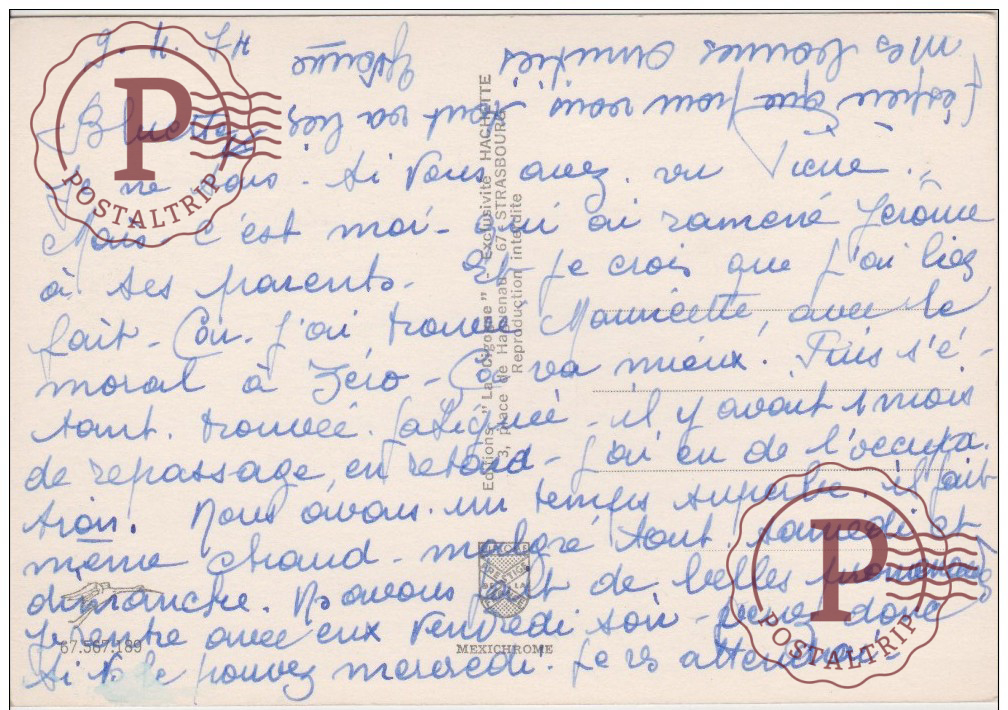 9. 4. 74
Bluette,
Je ne sais. si vous avez. vu Pierre..
Mais- c'est moi- qui ai ramené Jérôme
à ses parents. Et je crois que j'ai bien
fait- Car j'ai trouvé Mauricette, avec le
moral à zéro- Ça va mieux. Puis s'é-
tant. trouvée. fatiguée- il y avait 1 mois
de repassage, en retard- j'ai eu de l'occupa.
tion. Nous avons. un temps superbe. il fait
même chaud- malgré tout. samedi et
dimanche. Ns avons fait de belles promenades
Je rentre avec eux Vendredi soir- donc
si Vs le pouvez mercredi. Je vs attendrai-
J'espère que pour vous tout va bien
Mes bonnes amitiés
Yvonne
Editions "La Cigogne" - exclusivité HACHETTE
3, place de Haguenau 67 - STRASBOURG
Reproduction interdite
67.567.189
MEXICHROME
P
POSTALTRIP
P
POSTALTRIP